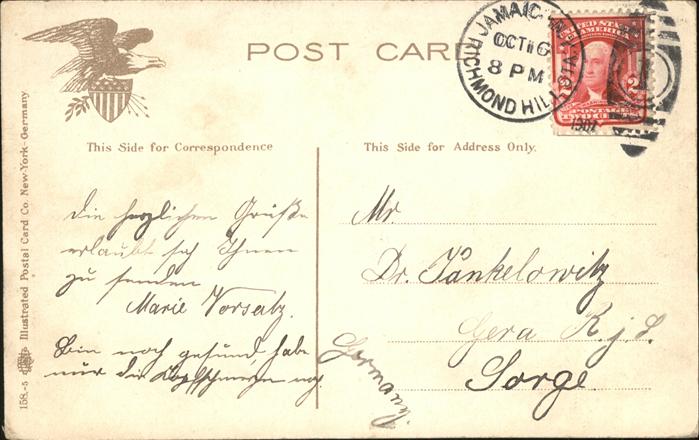 POST CARD
JAMAICA, N.Y.
OCT 16
8 PM
1907
RICHMOND HILL STA.
UNITED STATES
OF AMERICA
2
POSTAGE
This Side for Correspondence
This Side for Address Only.
158.-5 Illustrated Postal Card Co. New-York-Germany
Die herzlichen Grüße
erlaubt sich Ihnen
zu senden
Marie Vorsatz.
Bin noch gesund, habe
nur die Kopfschmerzen noch.
Mr.
Dr. Pankelowitz
Gera R. j. L.
Sorge
Germany.